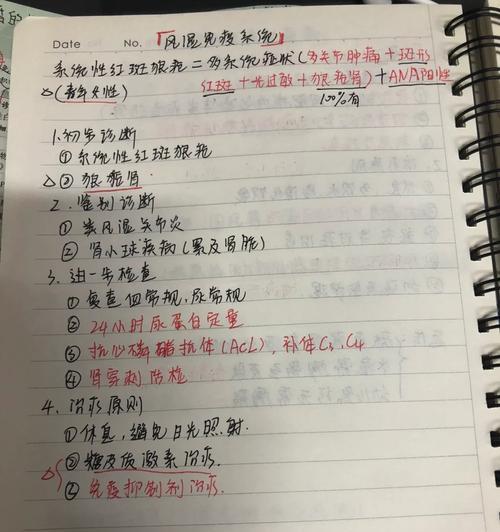 Date No. 「风湿免疫系统」
系统性红斑狼疮=多系统症状(多关节肿痛+斑形
△(青年女性) 红斑+光过敏+狼疮肾)+ANA阳性
100%有
1.初步诊断
①系统性红斑狼疮
△②狼疮肾
2.鉴别诊断
①类风湿关节炎
②肾小球疾病(累及肾脏)
3.进一步检查
①复查血常规,尿常规
②24小时尿蛋白定量
③抗心磷脂抗体(ACL),补体C3、C4
④肾穿刺活检
4.治疗原则
①休息,避免日光照射.
△②糖皮质激素治疗.
③免疫抑制剂治疗.